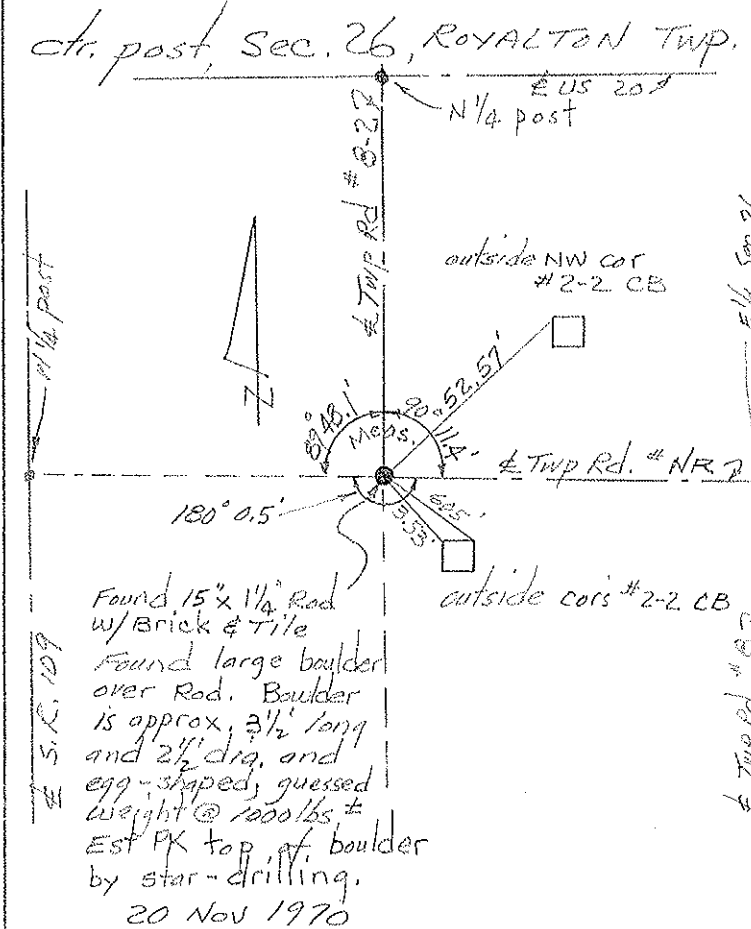 ctr. post, Sec. 26, ROYALTON TWP.
℄ US 20
N 1/4 post
℄ Twp Rd # 8-2
outside NW cor
#2-2 CB
1/4 post
N
52.57'
89° 48.1'
Meas.
90° 11.4'
℄ Twp Rd. # NR
180° 0.5'
3.53'
6.05'
outside cors #2-2 CB
Found 15" x 1 1/4" Rod
w/ Brick & Tile
Found large boulder
over Rod. Boulder
is approx. 3 1/2' long
and 2 1/2' dia. and
egg-shaped, guessed
weight @ 1000 lbs ±
Est PK top of boulder
by star-drilling.
20 NOV 1970
℄ S.R. 109
E 1/4
℄ Twp Rd #